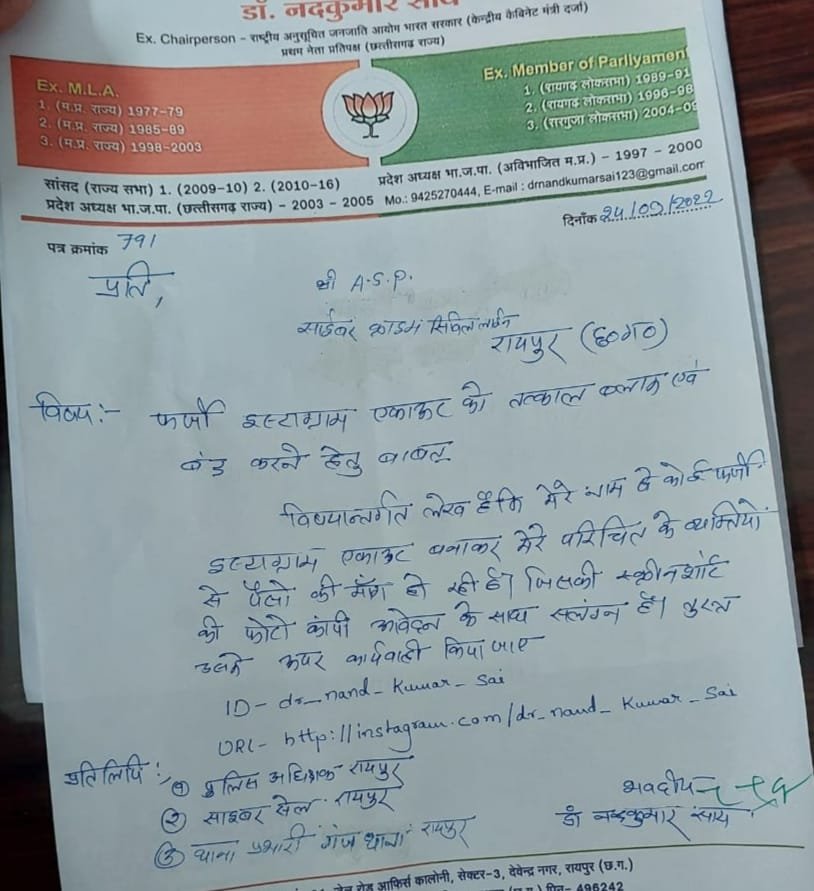 डॉ. नंदकुमार साय
Ex. Chairperson - राष्ट्रीय अनुसूचित जनजाति आयोग भारत सरकार (केन्द्रीय कैबिनेट मंत्री दर्जा)
प्रथम नेता प्रतिपक्ष (छत्तीसगढ़ राज्य)
Ex. M.L.A.
1. (म.प्र. राज्य) 1977-79
2. (म.प्र. राज्य) 1985-89
3. (म.प्र. राज्य) 1998-2003
Ex. Member of Parliyamen
1. (रायगढ़ लोकसभा) 1989-91
2. (रायगढ़ लोकसभा) 1996-98
3. (सरगुजा लोकसभा) 2004-09
सांसद (राज्य सभा) 1. (2009-10) 2. (2010-16)
प्रदेश अध्यक्ष भा.ज.पा. (अविभाजित म.प्र.) - 1997 - 2000
प्रदेश अध्यक्ष भा.ज.पा. (छत्तीसगढ़ राज्य) - 2003 - 2005
Mo.: 9425270444, E-mail : drnandkumarsai123@gmail.com
पत्र क्रमांक 791
दिनाँक 24/09/2022
प्रति,
श्री A.S.P.
साईबर क्राइम सिविल लाईन
रायपुर (छ०ग०)
विषय:- फर्जी इस्टाग्राम एकाऊंट को तत्काल ब्लाक एवं
बंद करने हेतु बाबत्
विषयान्तर्गत लेख है कि मेरे नाम से कोई फर्जी
इस्टाग्राम एकाऊंट बनाकर मेरे परिचित के व्यक्तियों
से पैसो की माँग हो रही है। जिसकी स्क्रीनशॉट
की फोटो कॉपी आवेदन के साथ सलंग्न है। तुरन्त
उसके ऊपर कार्यवाही किया जाए
ID - dr_nand_Kumar_Sai
URL- http://instagram.com/dr_nand_Kumar_Sai
प्रतिलिपि :-
① पुलिस अधिक्षक रायपुर
② साइबर सेल रायपुर
③ थाना प्रभारी गंज थाना रायपुर
भवदीय
डॉ नन्दकुमार साय
जेल रोड आफिर्स कालोनी, सेक्टर-3, देवेन्द्र नगर, रायपुर (छ.ग.)
पिन- 496242